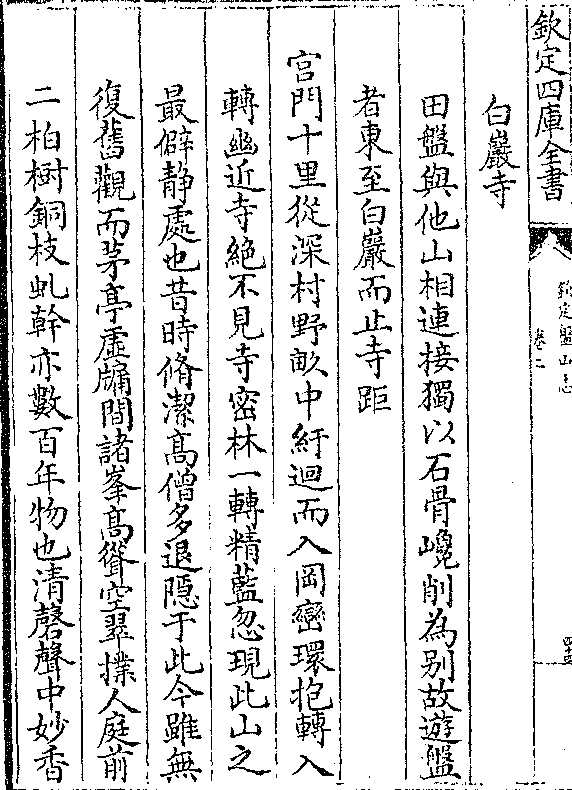 欽定四庫全書
欽定盤山志
卷二
白巖寺
田盤與他山相連接獨以石骨巉削為别故遊盤
者東至白巖而止寺距
宫門十里從深村野畝中紆迴而入岡巒環抱轉入
轉幽近寺絶不見寺密林一轉精藍忽現此山之
最僻静處也昔時脩潔髙僧多退隠于此今雖無
復舊觀而茅亭虛牖間諸峯髙聳空翠撲人庭前
二柏樹銅枝虬幹亦數百年物也清磬聲中妙香